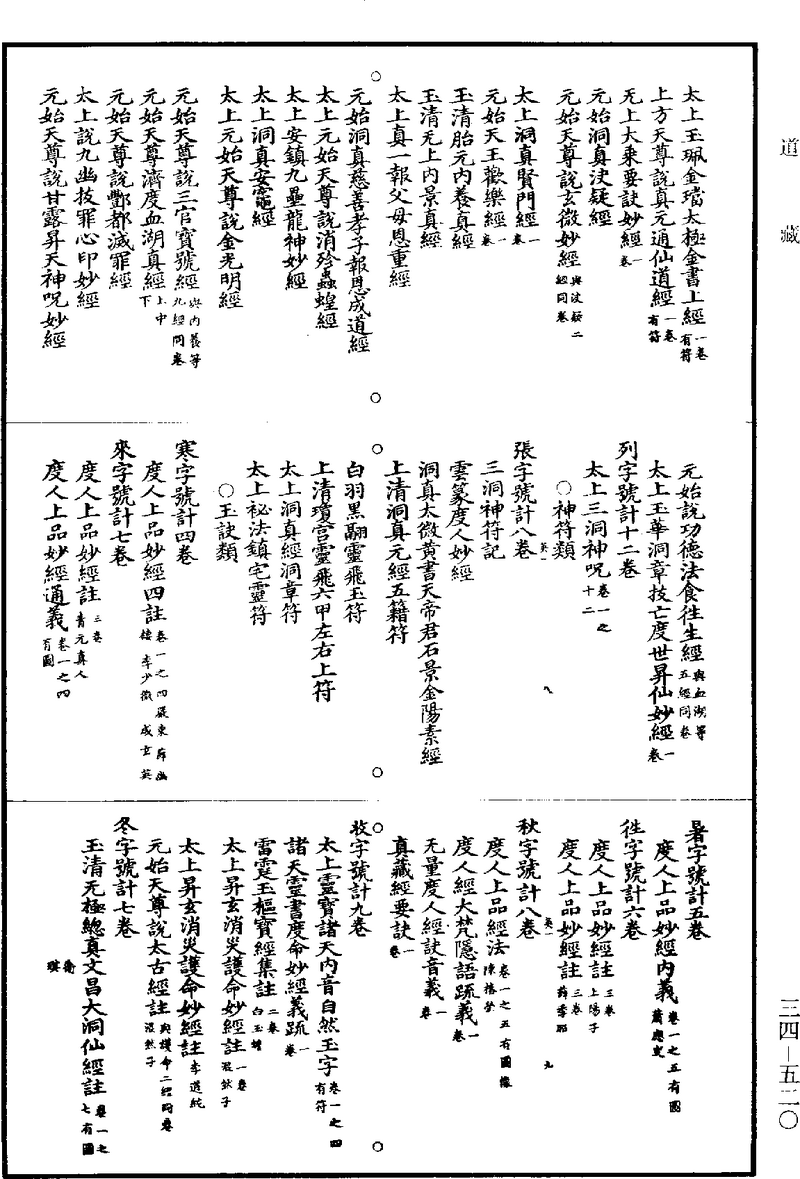 道藏
太上玉珮金璫太極金書上經一卷有符
上方天尊說真元通仙道經一卷有符
无上大乘要訣妙經一卷
元始洞真決疑經
元始天尊說玄微妙經與決疑二經同卷
太上洞真賢門經一卷
元始天王歡樂經一卷
玉清胎元內養真經
玉清无上內景真經
太上真一報父母恩重經
元始洞真慈善孝子報恩成道經
太上元始天尊說消殄蟲蝗經
太上安鎮九壘龍神妙經
太上洞真安竈經
太上元始天尊說金光明經
元始天尊說三官寶號經與內養等九經同卷
元始天尊濟度血湖真經上中下
元始天尊說酆都滅罪經
太上說九幽拔罪心印妙經
元始天尊說甘露昇天神呪妙經
元始說功德法食徃生經與血湖等五經同卷
太上玉華洞章拔亡度世昇仙妙經一卷
列字號計十二卷
太上三洞神呪卷一之十二
○神符類
張字號計八卷
三洞神符記
雲篆度人妙經
洞真太微黃書天帝君石景金陽素經
上清洞真元經五籍符
白羽黑翮靈飛玉符
上清瓊宮靈飛六甲左右上符
太上洞真經洞章符
太上祕法鎮宅靈符
○玉訣類
寒字號計四卷
度人上品妙經四註卷一之四嚴東薛幽棲李少微成玄英
來字號計七卷
度人上品妙經註三卷青元真人
度人上品妙經通義卷一之四有圖
八
暑字號計五卷
度人上品妙經內義卷一之五有圖蕭應叟
徃字號計六卷
度人上品妙經註三卷上陽子
度人上品妙經註三卷薛季昭
秋字號計八卷
度人上品經法卷一之五有圖像陳椿榮
度人經大梵隱語疏義一卷
无量度人經訣音義一卷
真藏經要訣一卷
九
收字號計九卷
太上靈寶諸天內音自然玉字卷一之四有符
諸天靈書度命妙經義疏一卷
雷霆玉樞寶經集註二卷白玉蟾
太上昇玄消災護命妙經註一卷混然子
太上昇玄消災護命妙經註李道純
元始天尊說太古經註與護命二經同卷混然子
冬字號計七卷
玉清无極總真文昌大洞仙經註卷一之七有圖衛琪
三四—五二〇